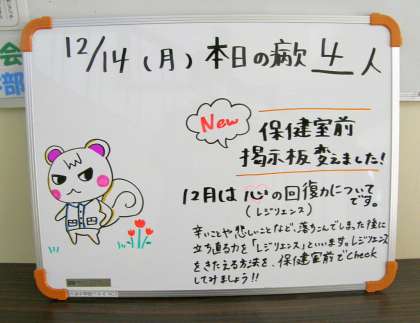 会
部
12/14(月) 本日の病欠 4 人
New
保健室前
掲示板変えました!
12月は 心の回復力について
(レジリエンス) です。
辛いことや悲しいことなど、落ちこんでしまった後に
立ち直る力を「レジリエンス」といいます。レジリエンス
をきたえる方法を、保健室前でCheck
してみましょう!!